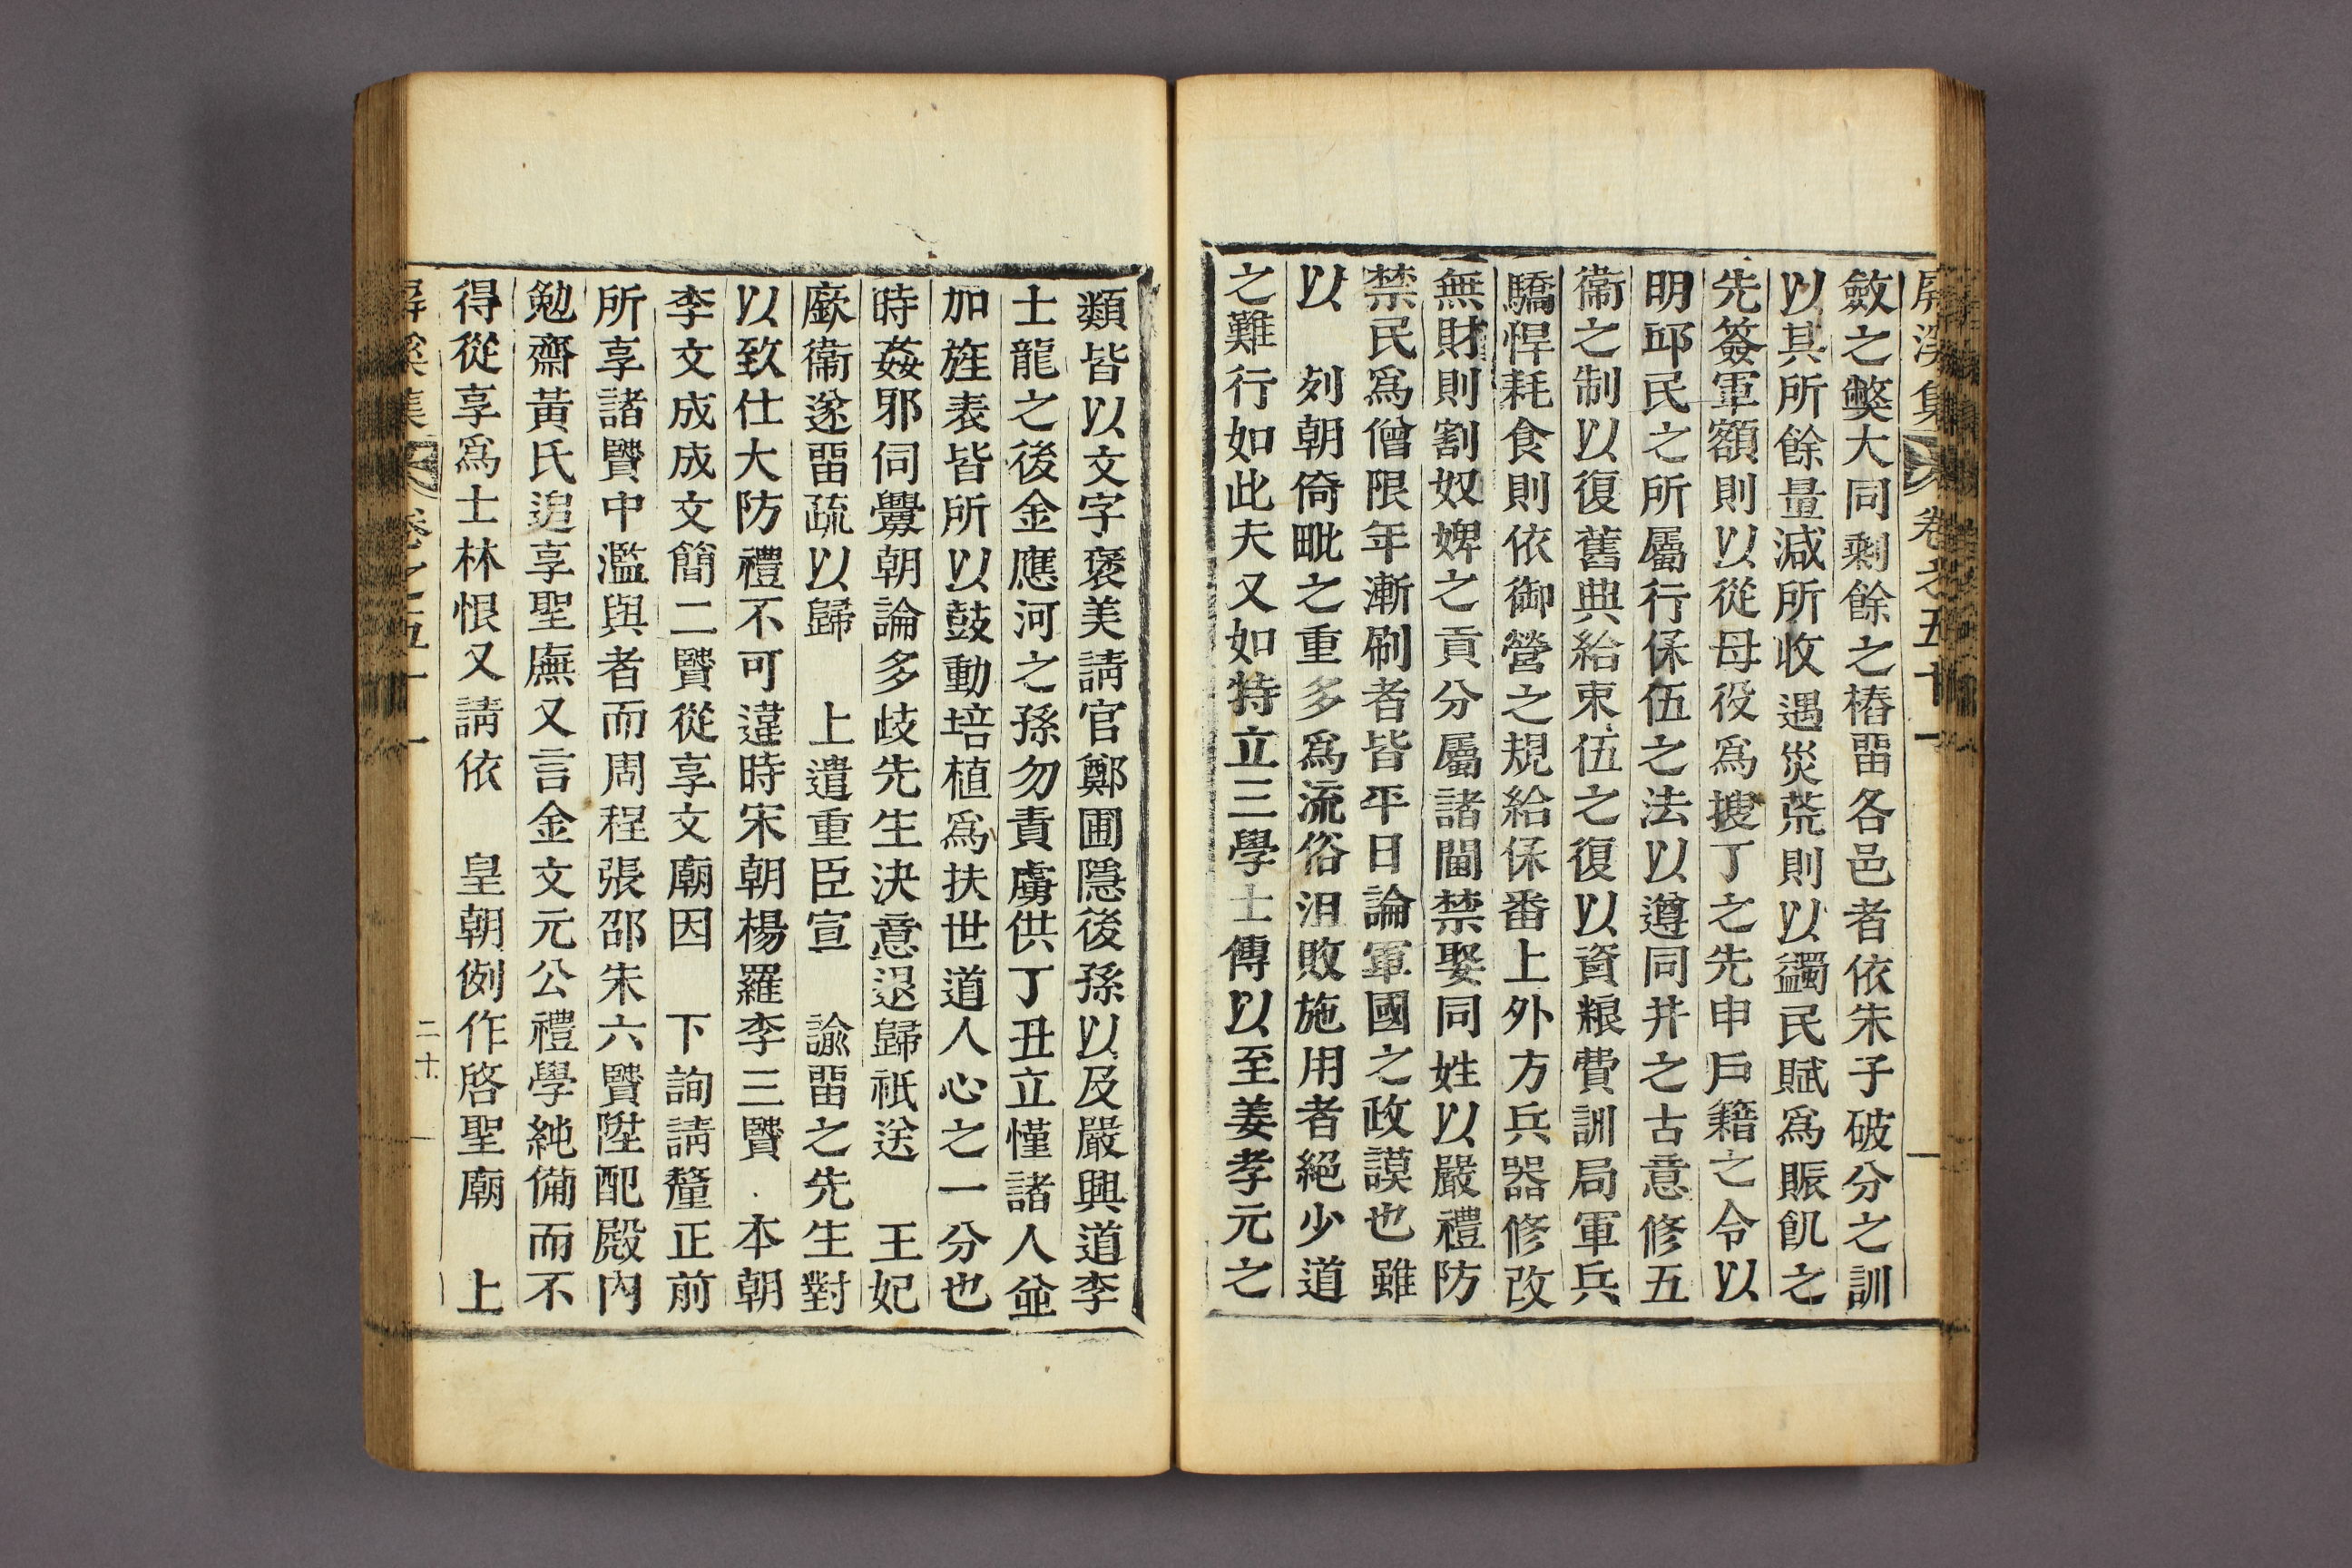 屏溪集 卷之五十一
斂之弊大同剩餘之樁畱各邑者依朱子破分之訓
以其所餘量減所收遇災荒則以蠲民賦爲賑飢之
先簽軍額則以從母役爲搜丁之先申戶籍之令以
明邱民之所屬行保伍之法以遵同井之古意修五
衞之制以復舊典給束伍之復以資粮費訓局軍兵
驕悍耗食則依御營之規給保番上外方兵器修改
無財則割奴婢之貢分屬諸閫禁娶同姓以嚴禮防
禁民爲僧限年漸刷者皆平日論軍國之政謨也雖
以 列朝倚毗之重多爲流俗沮敗施用者絕少道
之難行如此夫又如特立三學士傳以至姜孝元之
類皆以文字褒美請官鄭圃隱後孫以及嚴興道李
士龍之後金應河之孫勿責虜供丁丑立慬諸人並
加旌表皆所以鼓動培植爲扶世道人心之一分也
時姦邪伺釁朝論多歧先生決意退歸祇送 王妃
厥衞遂畱疏以歸 上遣重臣宣 諭畱之先生對
以致仕大防禮不可違時宋朝楊羅李三賢 本朝
李文成成文簡二賢從享文廟因 下詢請釐正前
所享諸賢中濫與者而周程張邵朱六賢陞配殿內
勉齋黃氏追享聖廡又言金文元公禮學純備而不
得從享爲士林恨又請依 皇朝例作啓聖廟 上
屏溪集 卷之五十一 二十